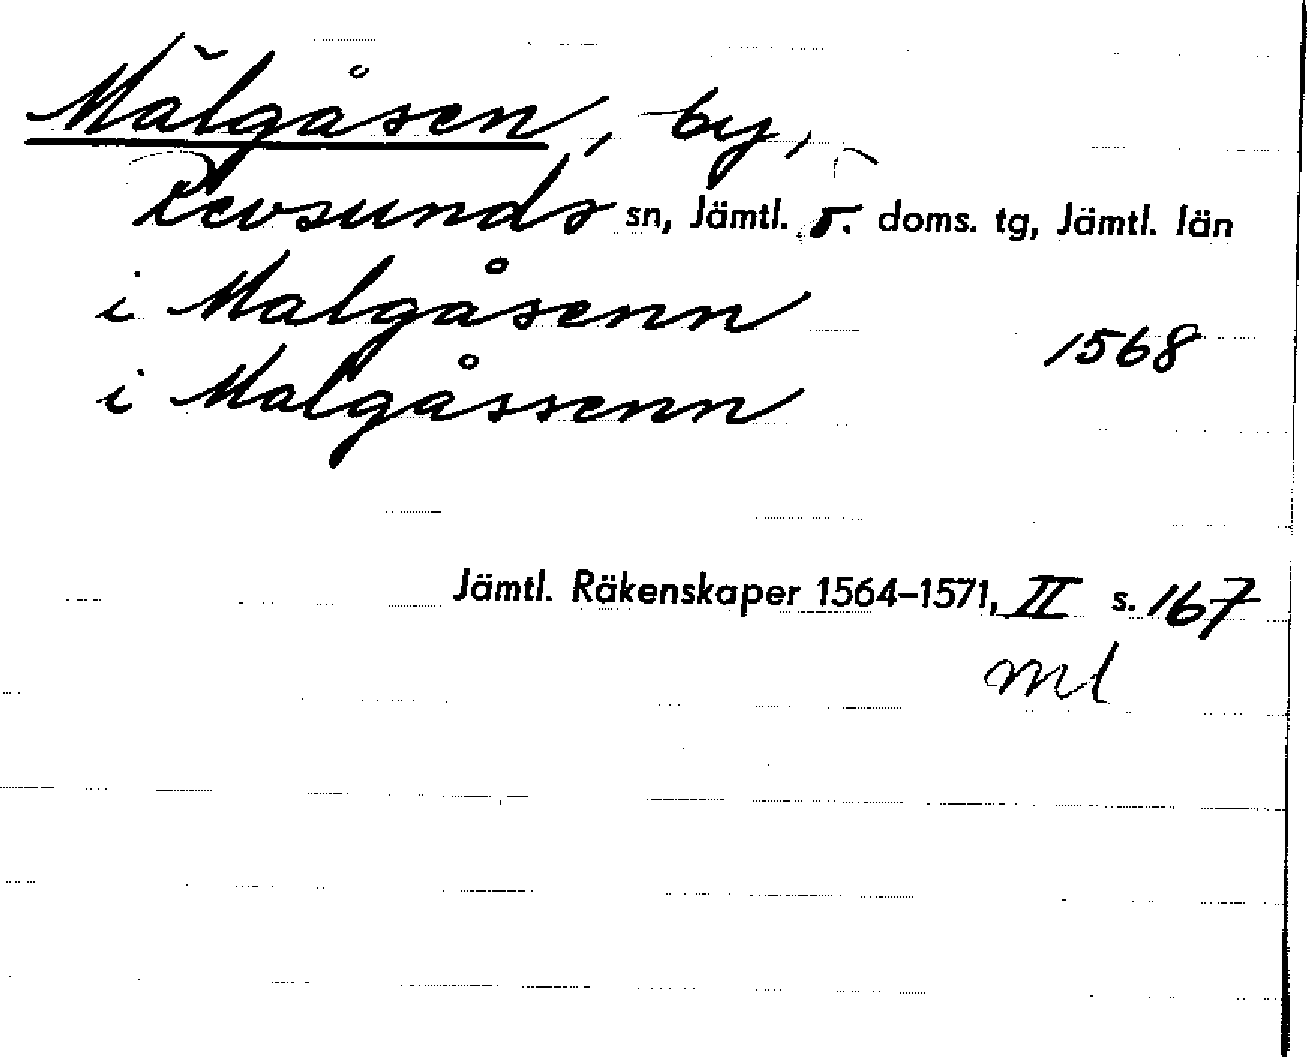 Mälgåsen, by,
Revsunds sn, Jämtl. ö. doms. tg, Jämtl. län
i Malgåsenn
1568
i Malgåssenn
Jämtl. Räkenskaper 1564–1571, II s. 167
ml